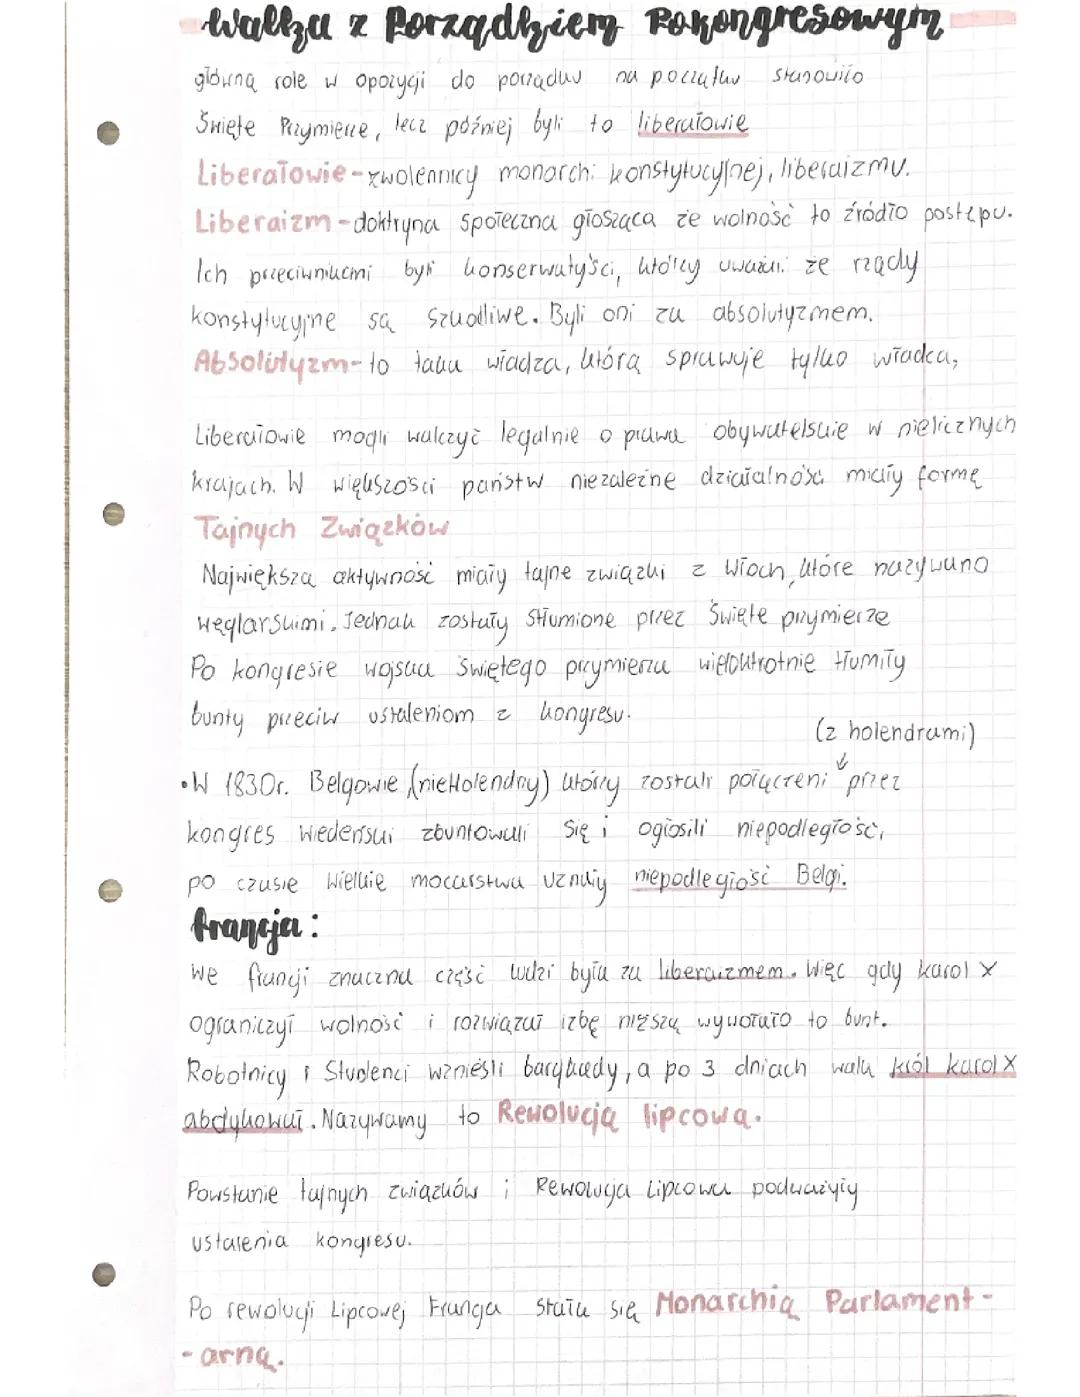 Walka z Porządkiem Pokongresowym
główną role w opozycji do porządku na początku stanowiło
Święte Przymierze, lecz później byli to liberałowie
Liberałowie - zwolennicy monarchi konstytucyjnej, liberaizmu.
Liberaizm - doktryna społeczna głosząca że wolność to źródło postępu.
Ich przeciwnikami byli konserwatyści, którzy uważali że rządy
konstytucyjne są szkodliwe. Byli oni za absolutyzmem.
Absolutyzm - to taka władza, którą sprawuje tylko władca,
Liberałowie mogli walczyć legalnie o prawa obywatelskie w nielicznych
krajach. W większości państw niezależne działalności miały formę
Tajnych Związków
Największą aktywność miały tajne związki z Włoch, które nazywano
węglarskimi. Jednak zostały stłumione przez Święte przymierze
Po kongresie wojska świętego przymierza wielokrotnie tłumiły
bunty przeciw ustaleniom z kongresu.
(z holendrami)
• W 1830r. Belgowie (nieHolendrzy) którzy zostali połączeni przez
kongres wiedeński zbuntowali się i ogłosili niepodległość,
po czasie wielkie mocarstwa uznały niepodległość Belgi.
francja:
We francji znaczna część ludzi była za liberaizmem. Więc gdy karol X
ograniczył wolność i rozwiązał izbę niższą wywołało to bunt.
Robotnicy i Studenci wznieśli barykady, a po 3 dniach walk król karol X
abdykował. Nazywamy to Rewolucją lipcową.
Powstanie tajnych związków i Rewolucja Lipcowa podważyły
ustalenia kongresu.
Po rewolucji Lipcowej Francja stała się Monarchią Parlament-
- arną.